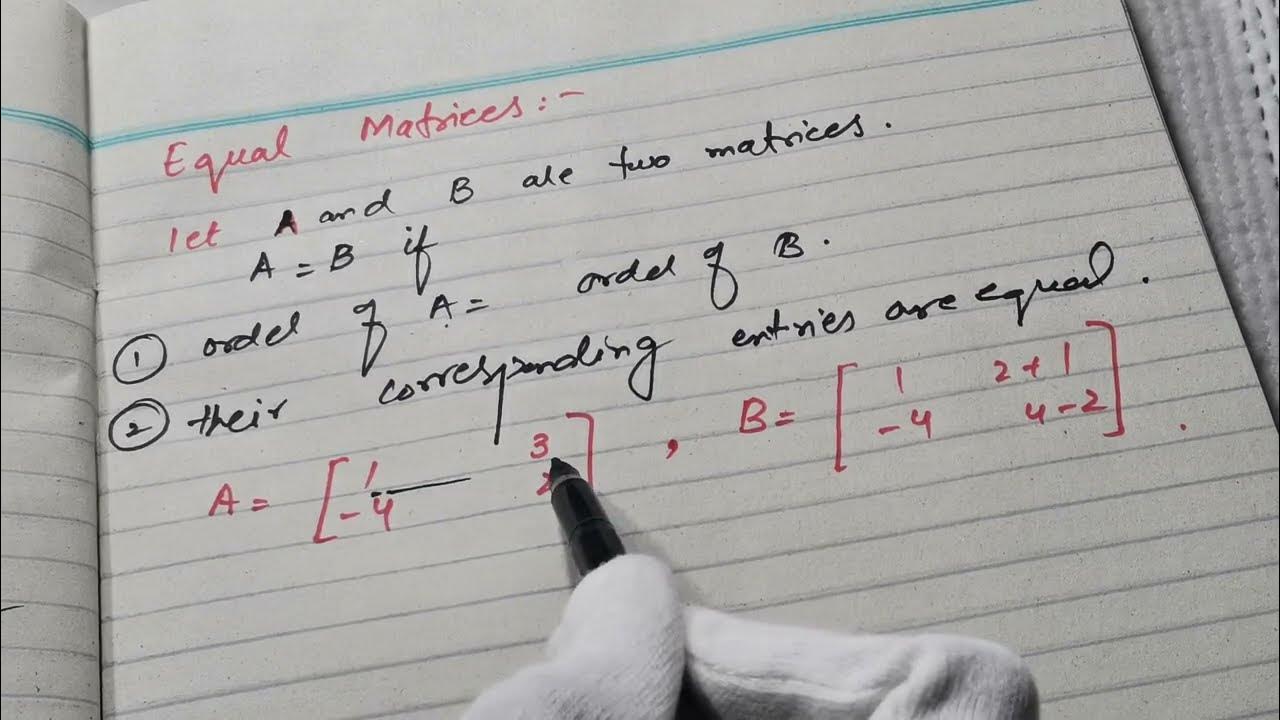 Equal Matrices:-
let A and B are two matrices.
A = B if
① order of A = order of B.
② their corresponding entries are equal.
A = [ 1 3 , B = [ 1 2+1
-4 2 ] -4 4-2 ] .